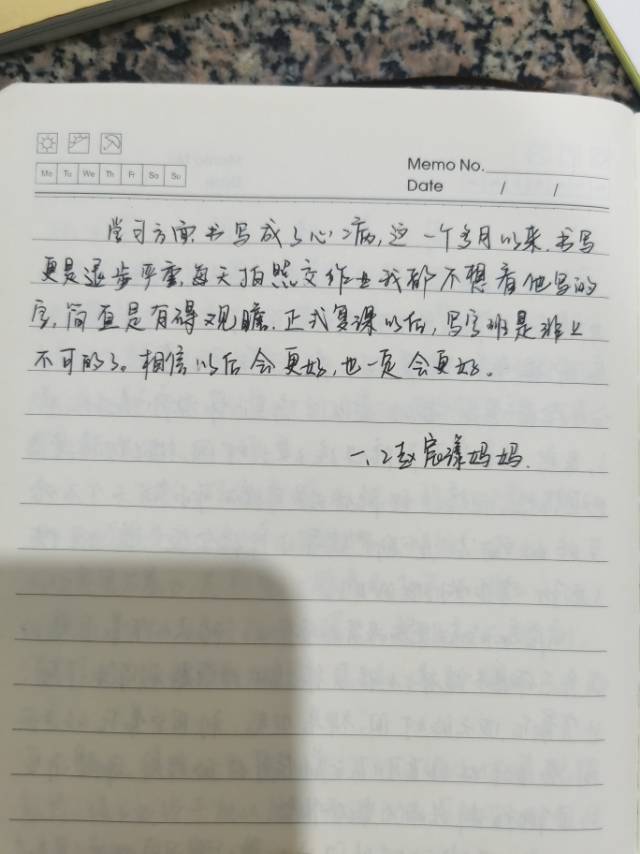 Memo No.
Mo Tu We Th Fr Sa Su
Date / /
学习方面书写成了心病,近一个多月以来,书写
更是退步严重,每天拍照交作业我都不想看他写的
字,简直是有碍观瞻。正式复课以后,写字班是非上
不可的了。相信以后会更好,也一定会更好。
一、2赵宸漾妈妈.